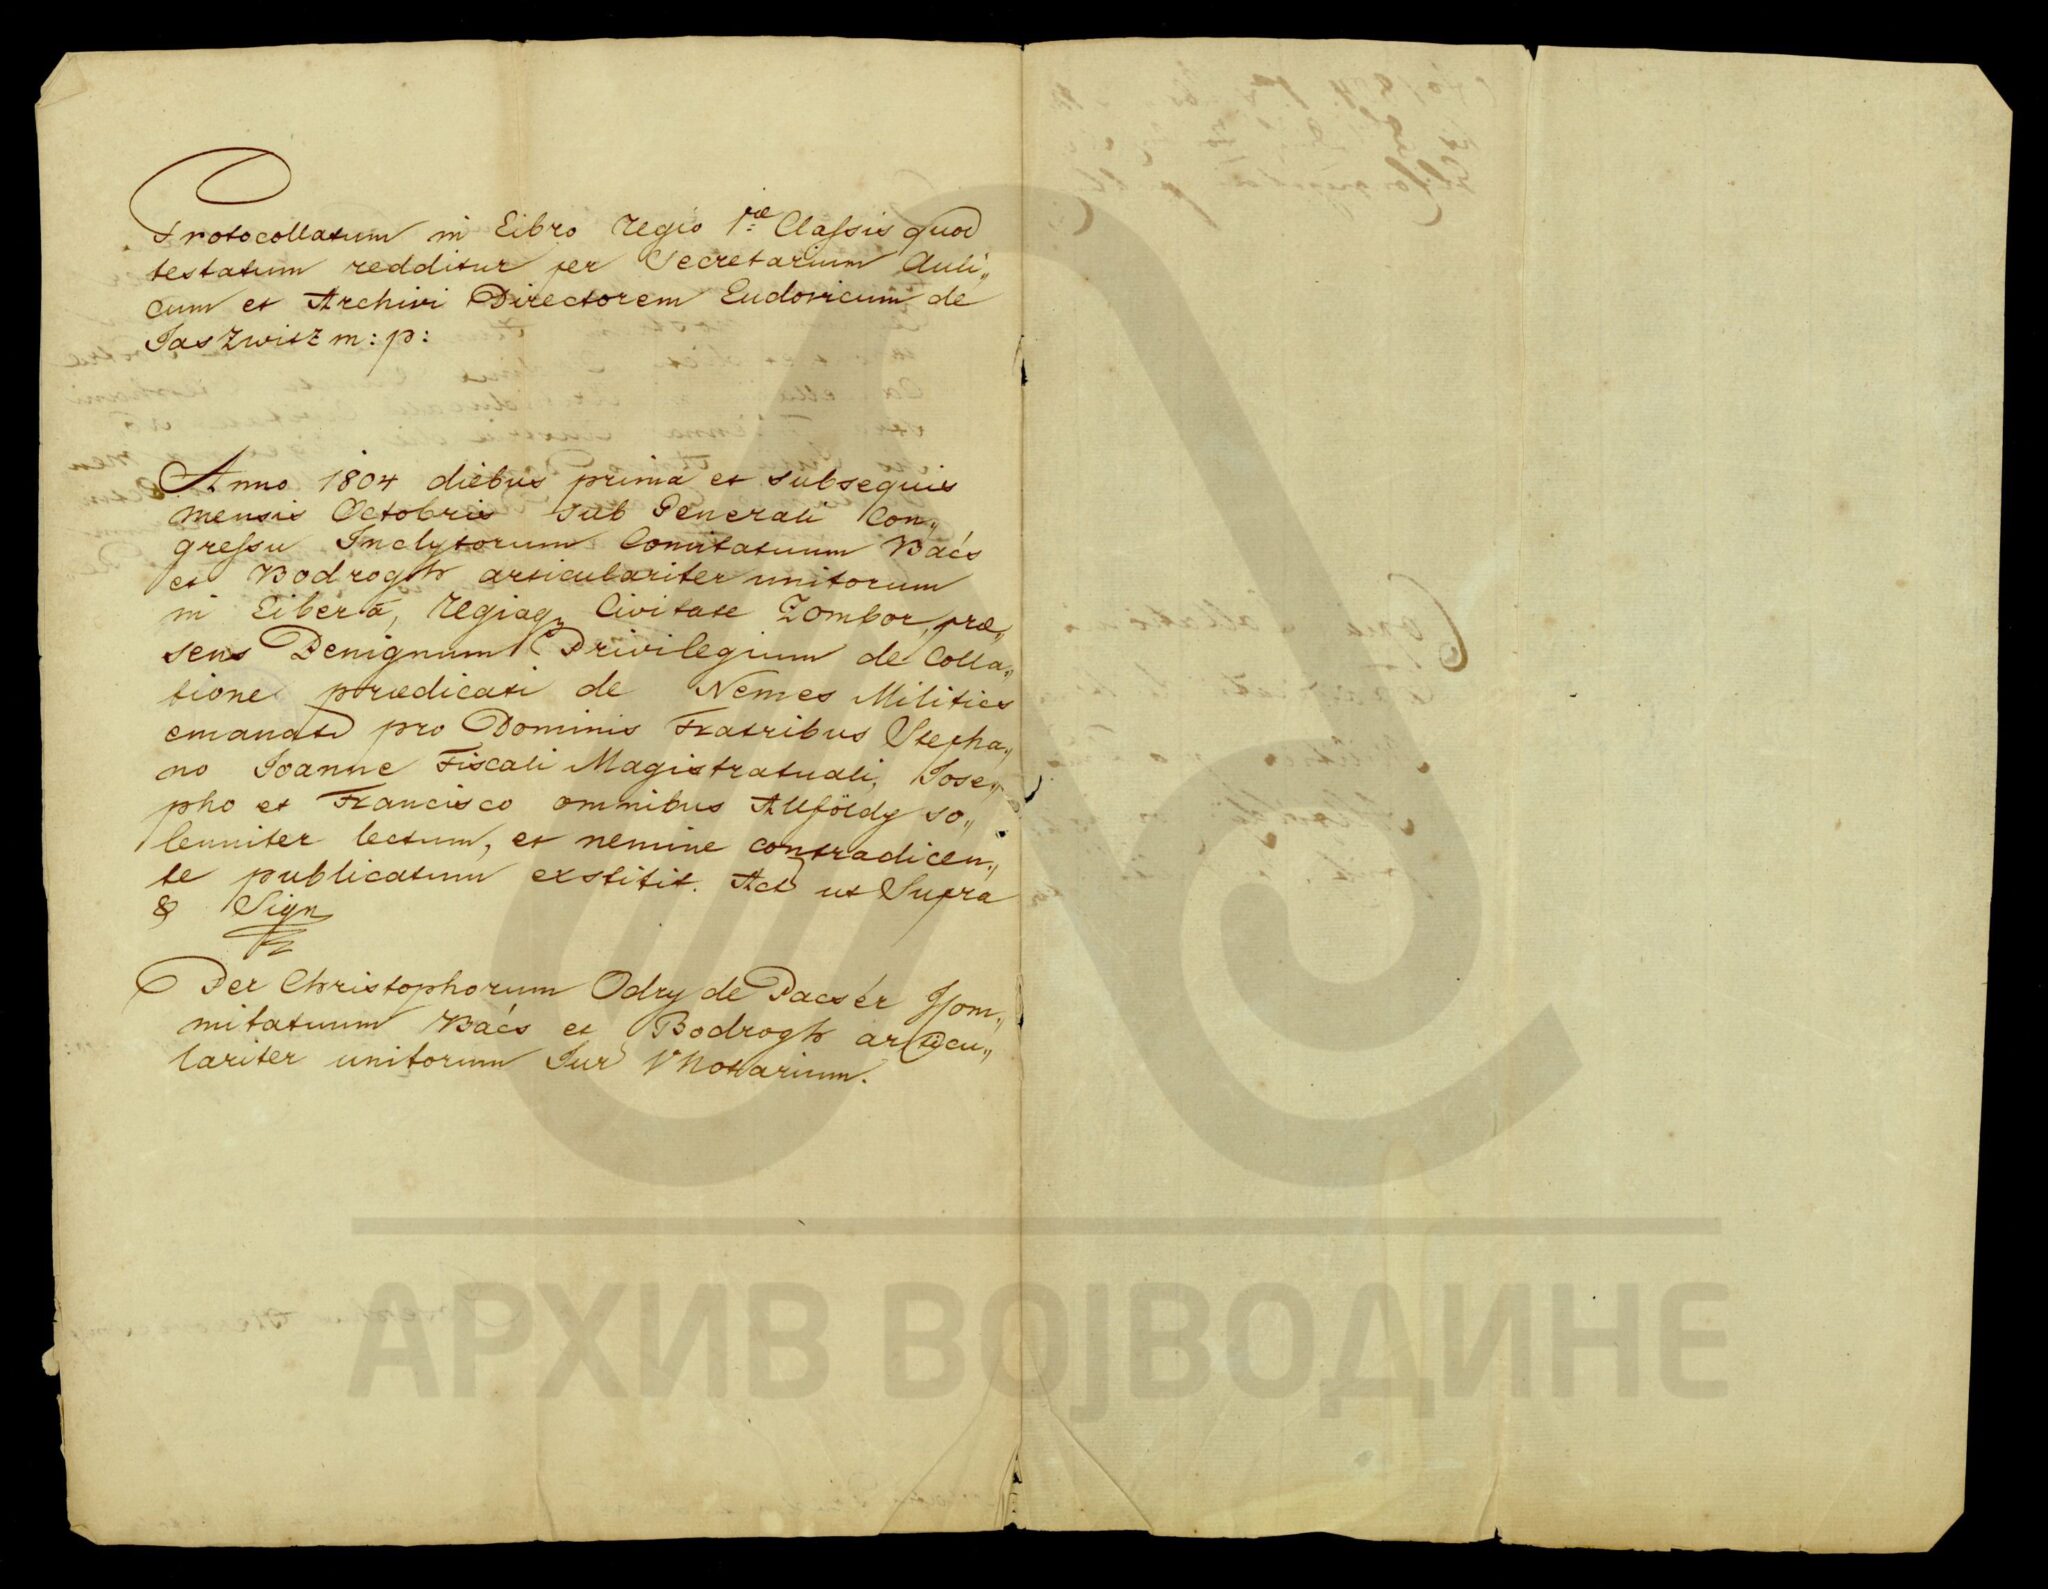 Protocollatum in Libro Regio 1ræ Classis quod
testatum redditur per Secretarium Auli„
cum et Archivi Directorem Ludovicum de
Jaszwitz m: p:
Anno 1804 diebus prima et subsequis
mensis Octobris sub Generali Con„
gressu Inclytorum Comitatuum Bács
et Bodrogh articulariter unitorum
in Libera, Regiaq Civitate Zombor, præ„
sens Benignum Privilegium de Colla„
tione prædicati de Nemes Militics
emanatū pro Dominis Fratribus Stepha„
no Joanne Fiscali Magistratuali, Jose„
pho et Francisco omnibus Allföldy so„
lenniter lectum, et nemine contradicen„
te publicatum exstitit. Act ut Supra
& Sign
Per Christophorum Odry de Pacsér
mitatuum Bács et Bodrogh articu„
lariter unitorum Jur VNotarium.
АРХИВ ВОЈВОДИНЕ